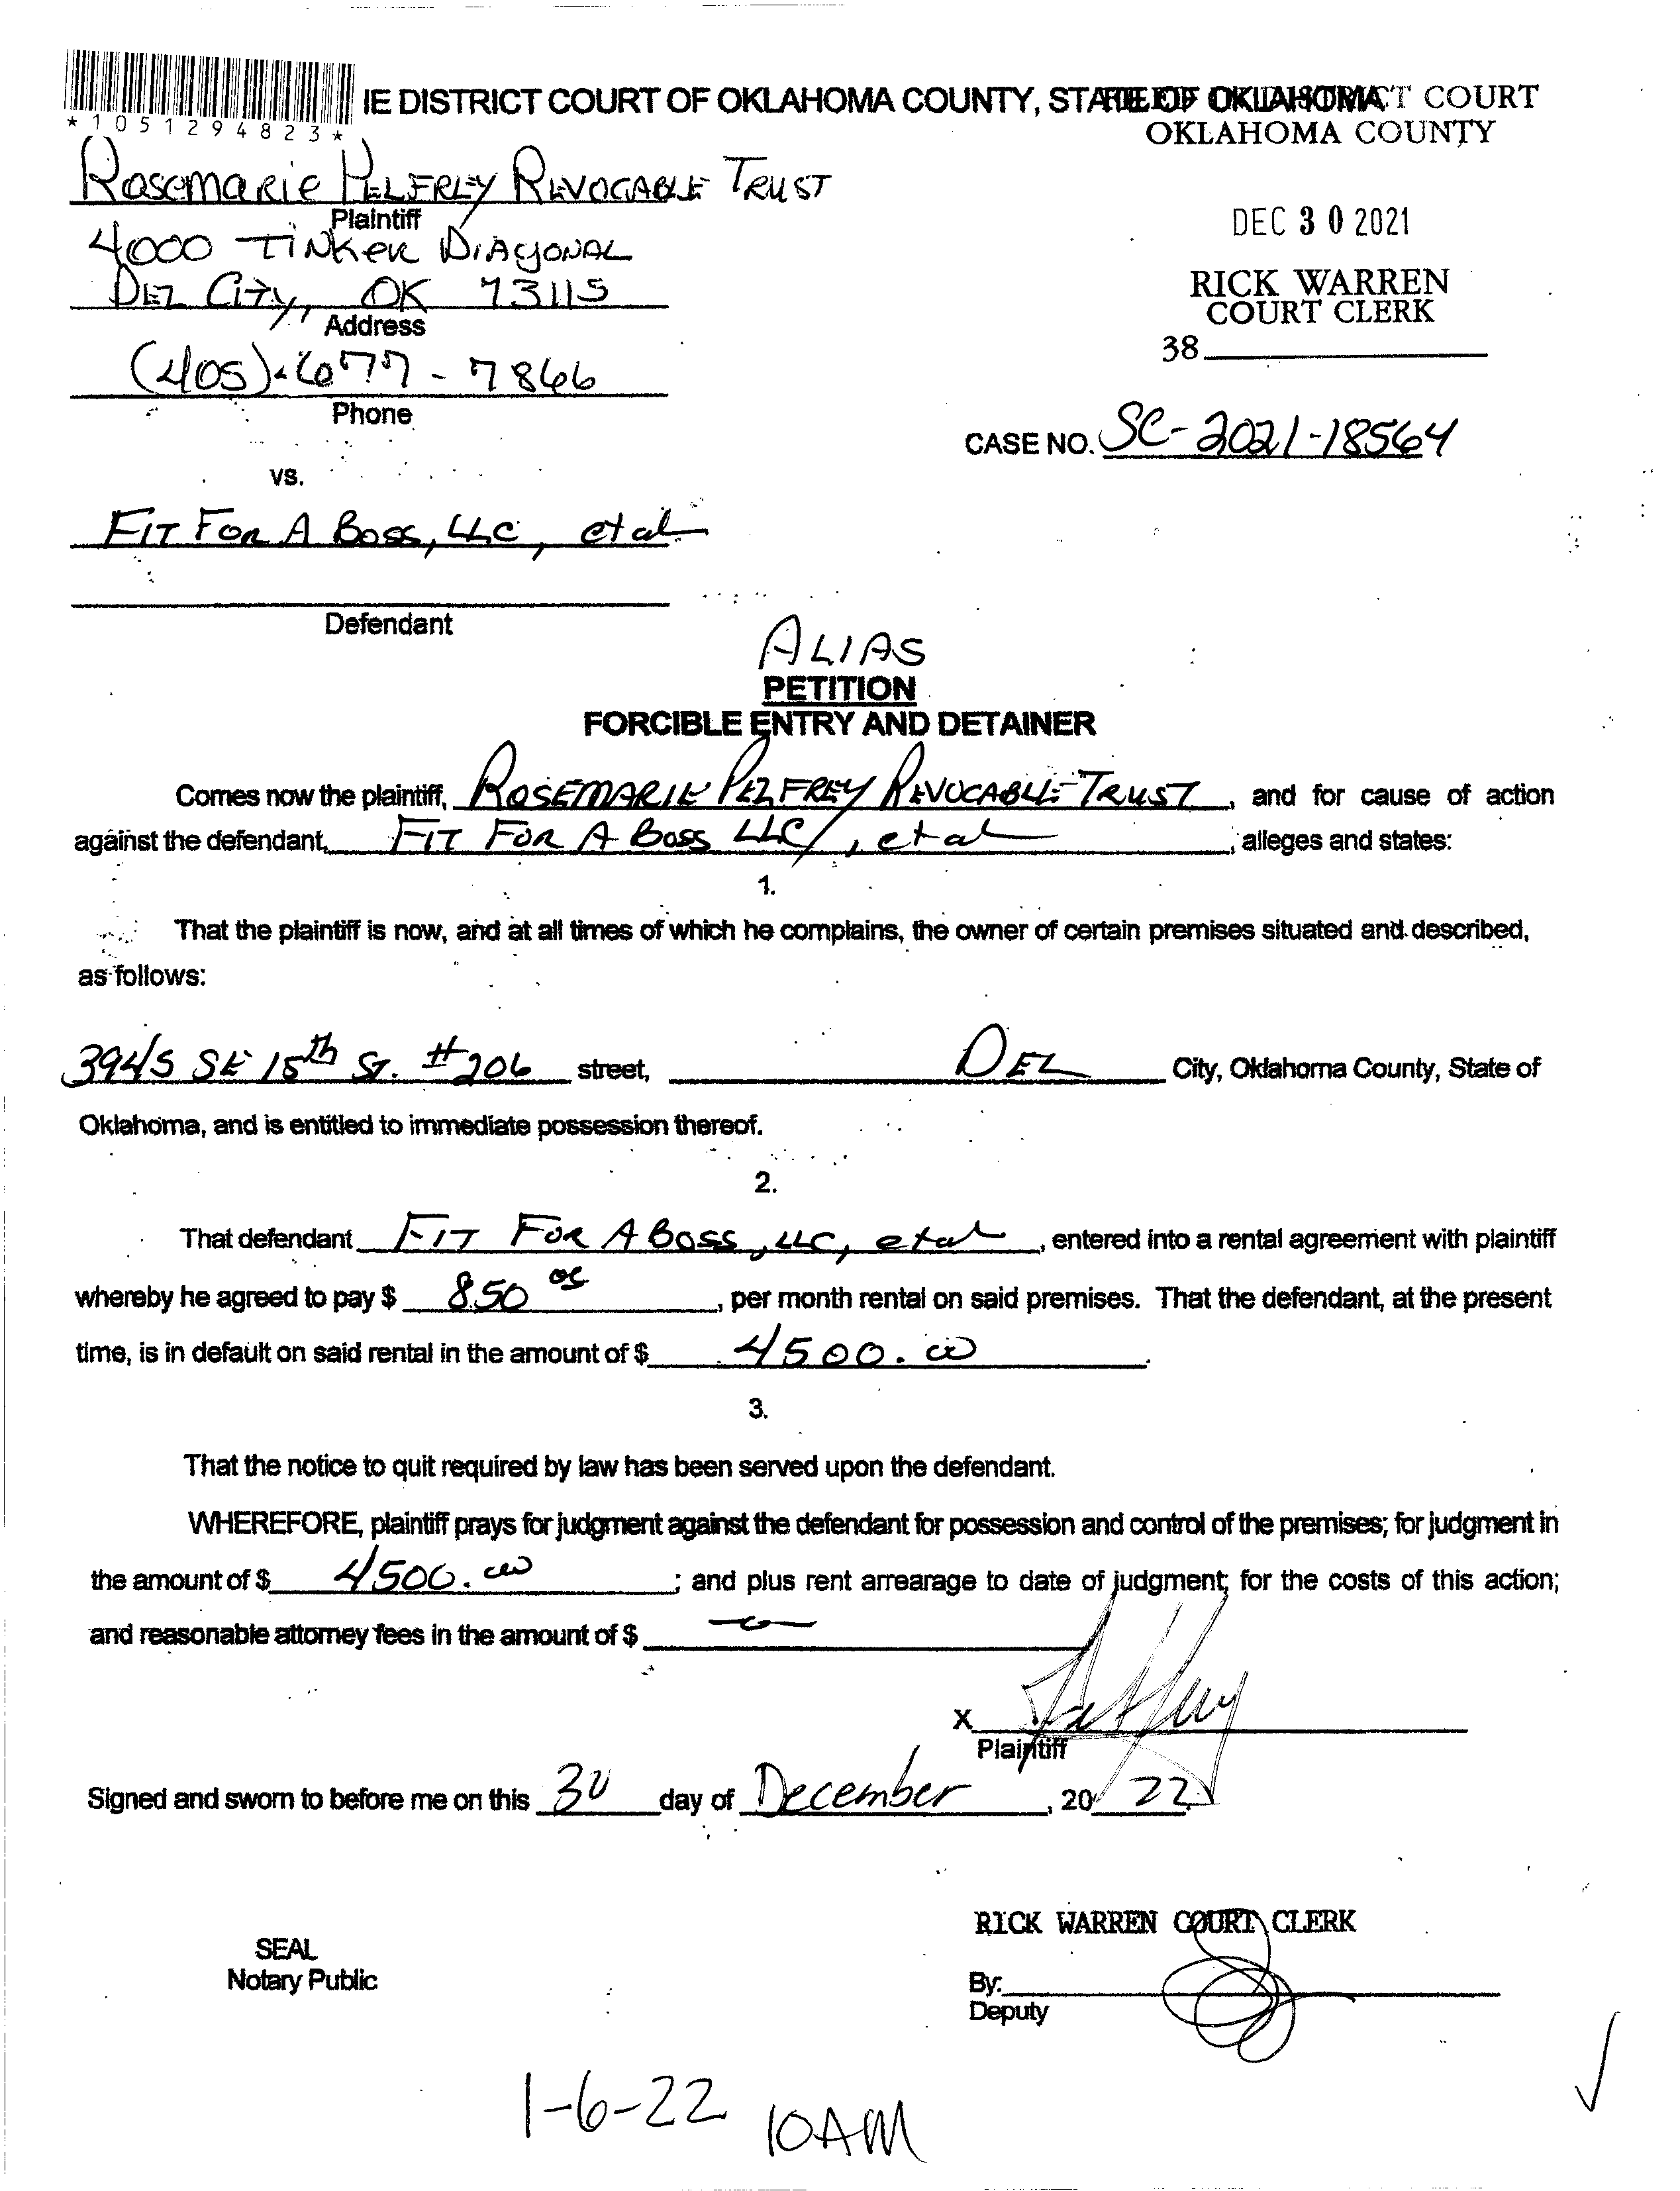 IE DISTRICT COURT OF OKLAHOMA COUNTY, STATE OF OKLAHOMA
COURT
OKLAHOMA COUNTY
*1051294823*
RosemaRie PELFREY REVOCABLE TRUST
Plaintiff
DEC 30 2021
4000 TiNKER DiAGONAL
DEL CiTy, OK 73115
Address
RICK WARREN
COURT CLERK
38
(405) 677-7866
Phone
CASE NO. SC-2021-18564
vs.
FIT FOR A BOSS, LLC, et al
Defendant
ALIAS
PETITION
FORCIBLE ENTRY AND DETAINER
Comes now the plaintiff, ROSEMARIE PELFREY REVOCABLE TRUST, and for cause of action
against the defendant, FIT FOR A BOSS LLC, et al, alleges and states:
1.
That the plaintiff is now, and at all times of which he complains, the owner of certain premises situated and described,
as follows:
3945 SE 15th ST. #206 street, DEL City, Oklahoma County, State of
Oklahoma, and is entitled to immediate possession thereof.
2.
That defendant FIT FOR A BOSS, LLC, et al, entered into a rental agreement with plaintiff
whereby he agreed to pay $ 850 00, per month rental on said premises. That the defendant, at the present
time, is in default on said rental in the amount of $ 4500.00.
3.
That the notice to quit required by law has been served upon the defendant.
WHEREFORE, plaintiff prays for judgment against the defendant for possession and control of the premises; for judgment in
the amount of $ 4500.00; and plus rent arrearage to date of judgment; for the costs of this action;
and reasonable attorney fees in the amount of $ -0-
X
Plaintiff
Signed and sworn to before me on this 30 day of December, 20 22.
RICK WARREN COURT CLERK
SEAL
Notary Public
By:
Deputy
1-6-22 10AM